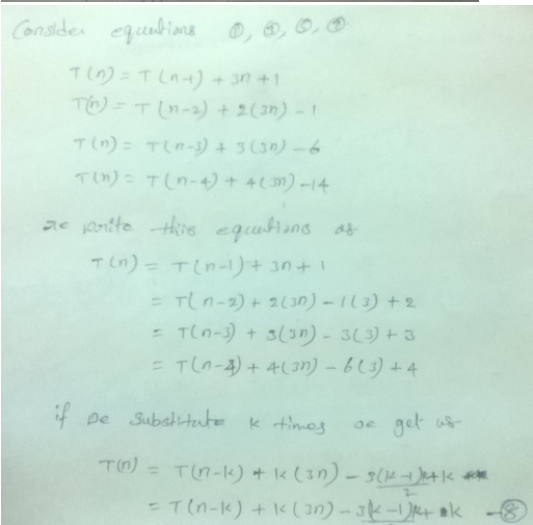 Consider equations ①, ②, ③, ④
T(n) = T(n-1) + 3n + 1
T(n) = T(n-2) + 2(3n) - 1
T(n) = T(n-3) + 3(3n) - 6
T(n) = T(n-4) + 4(3n) - 14
write this equations as
T(n) = T(n-1) + 3n + 1
= T(n-2) + 2(3n) - 1(3) + 2
= T(n-3) + 3(3n) - 3(3) + 3
= T(n-4) + 4(3n) - 6(3) + 4
if we substitute k times we get as
T(n) = T(n-k) + k(3n) - 3(k-1)k/2 + k
= T(n-k) + k(3n) - 3(k-1)k + k —⑧